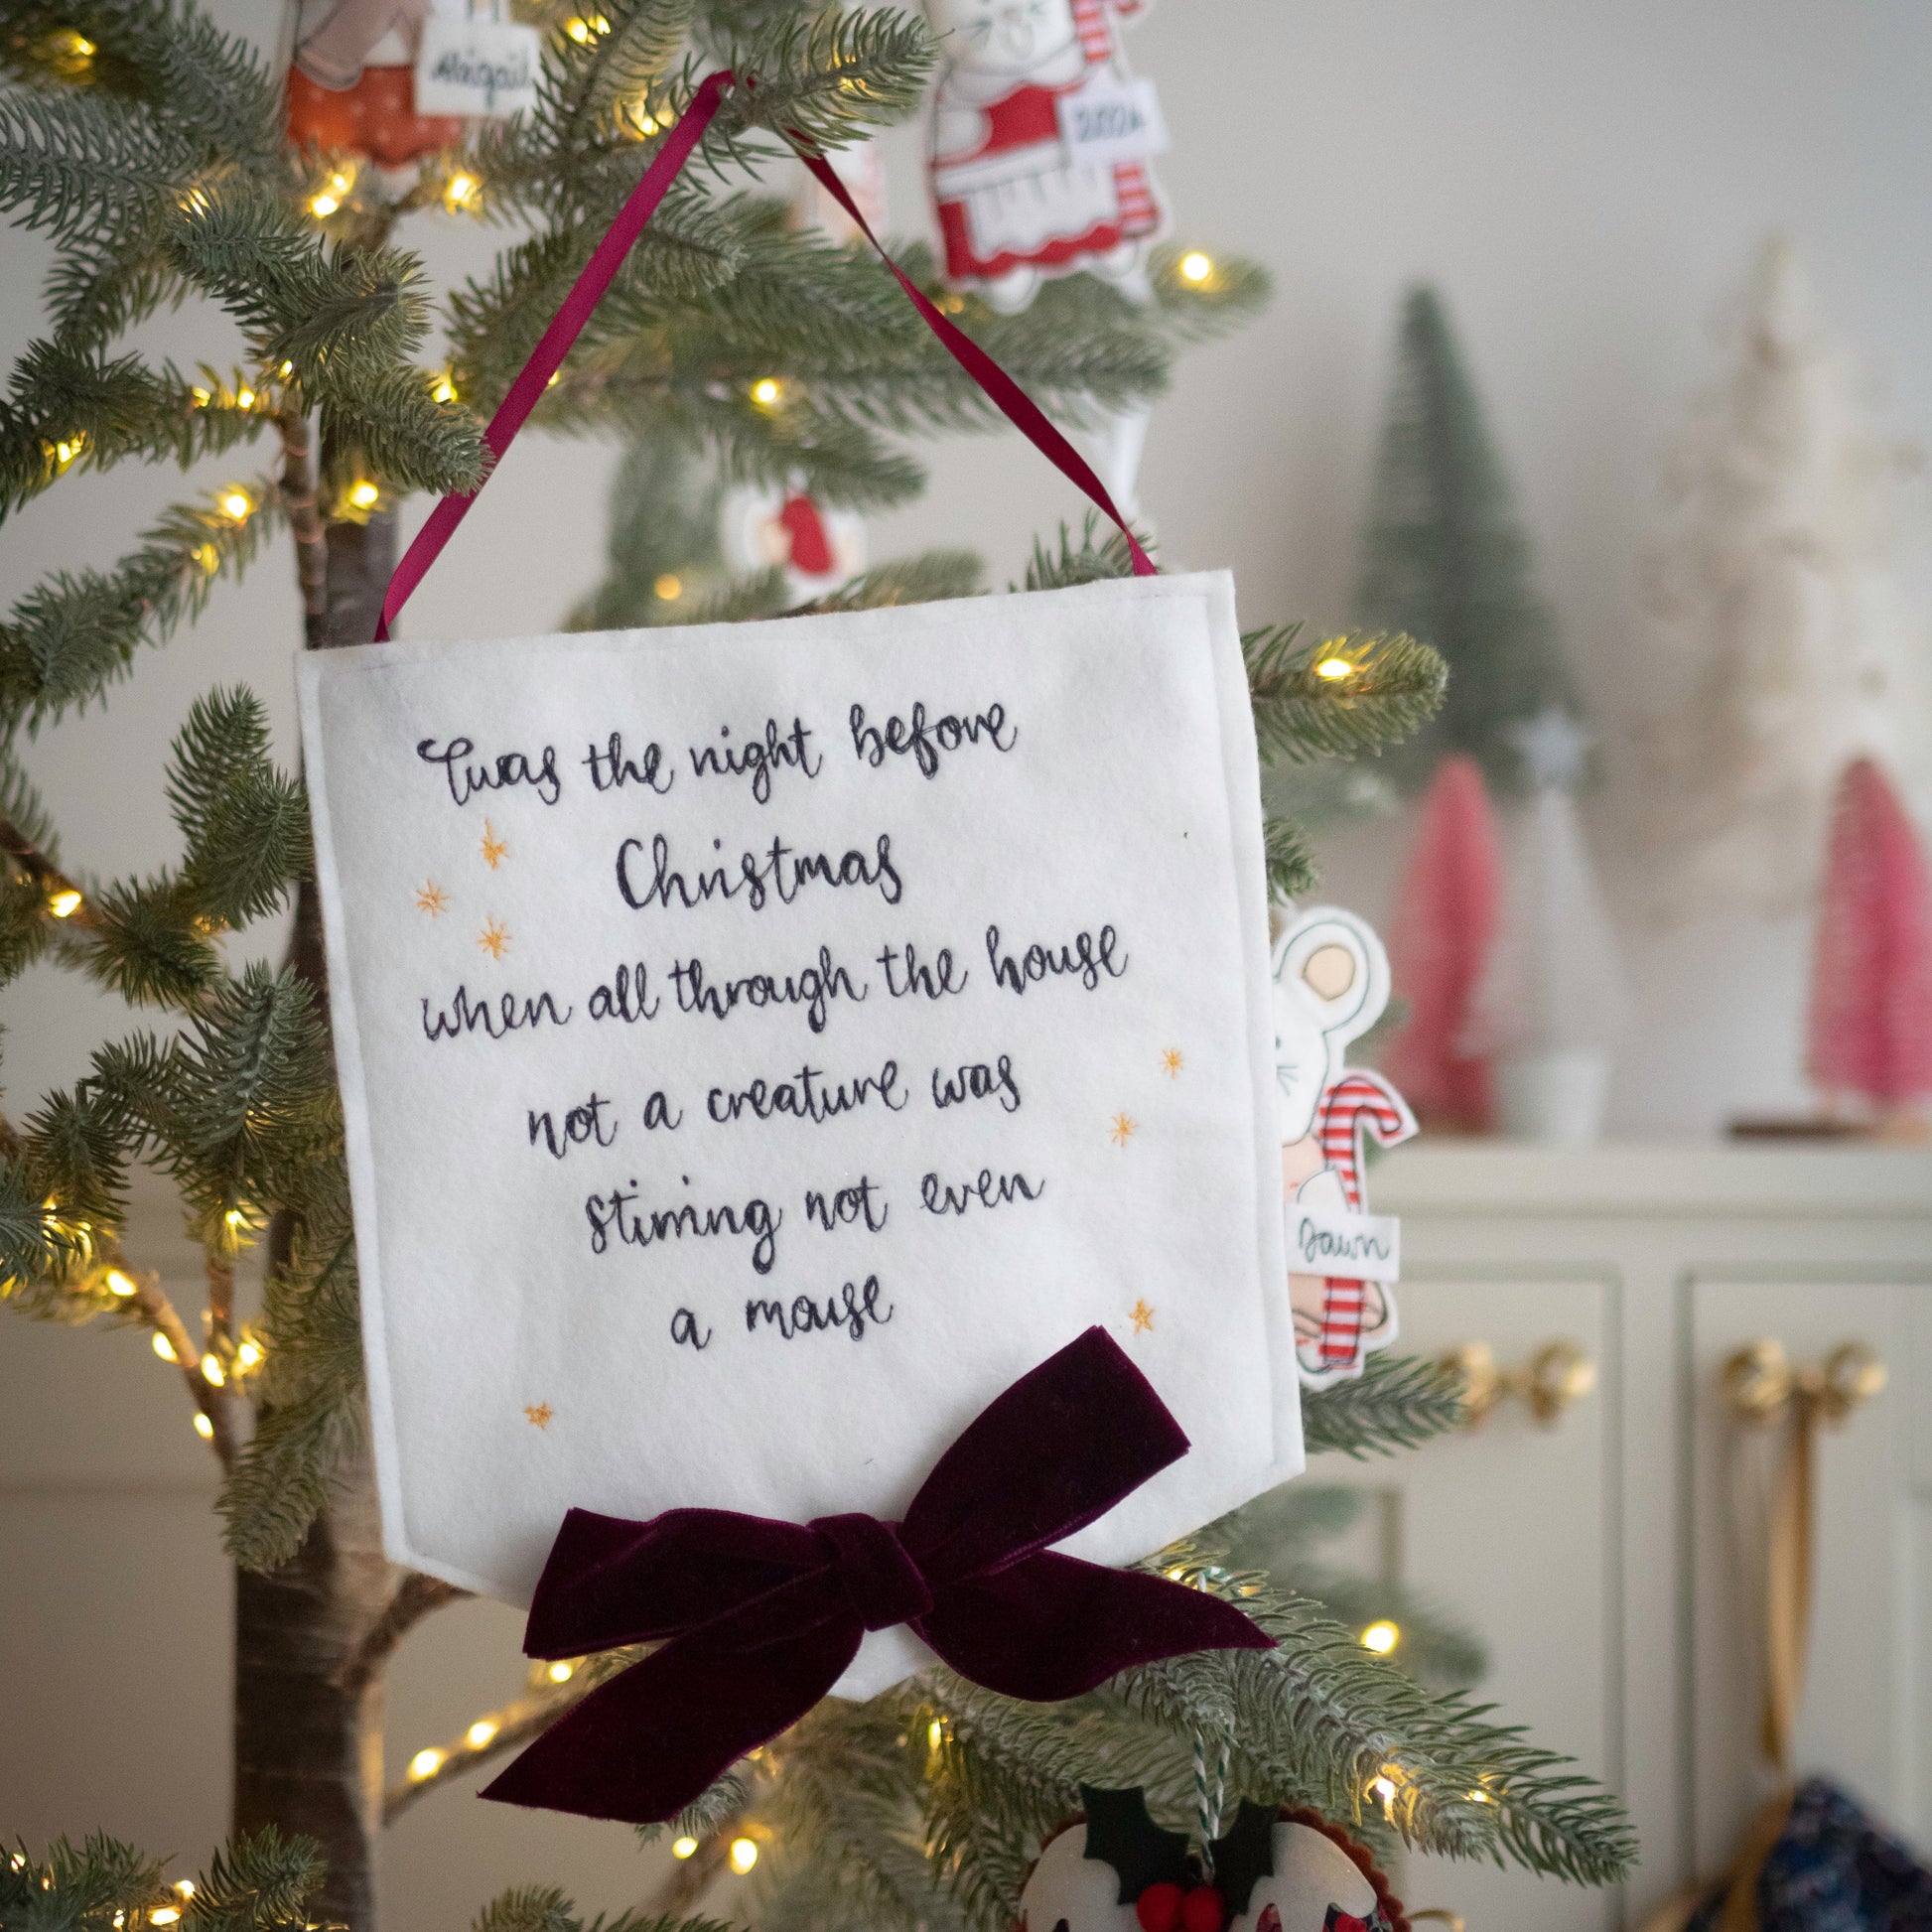 Abigail
'Twas the night before
Christmas
when all through the house
not a creature was
stirring not even
a mouse
Dawn